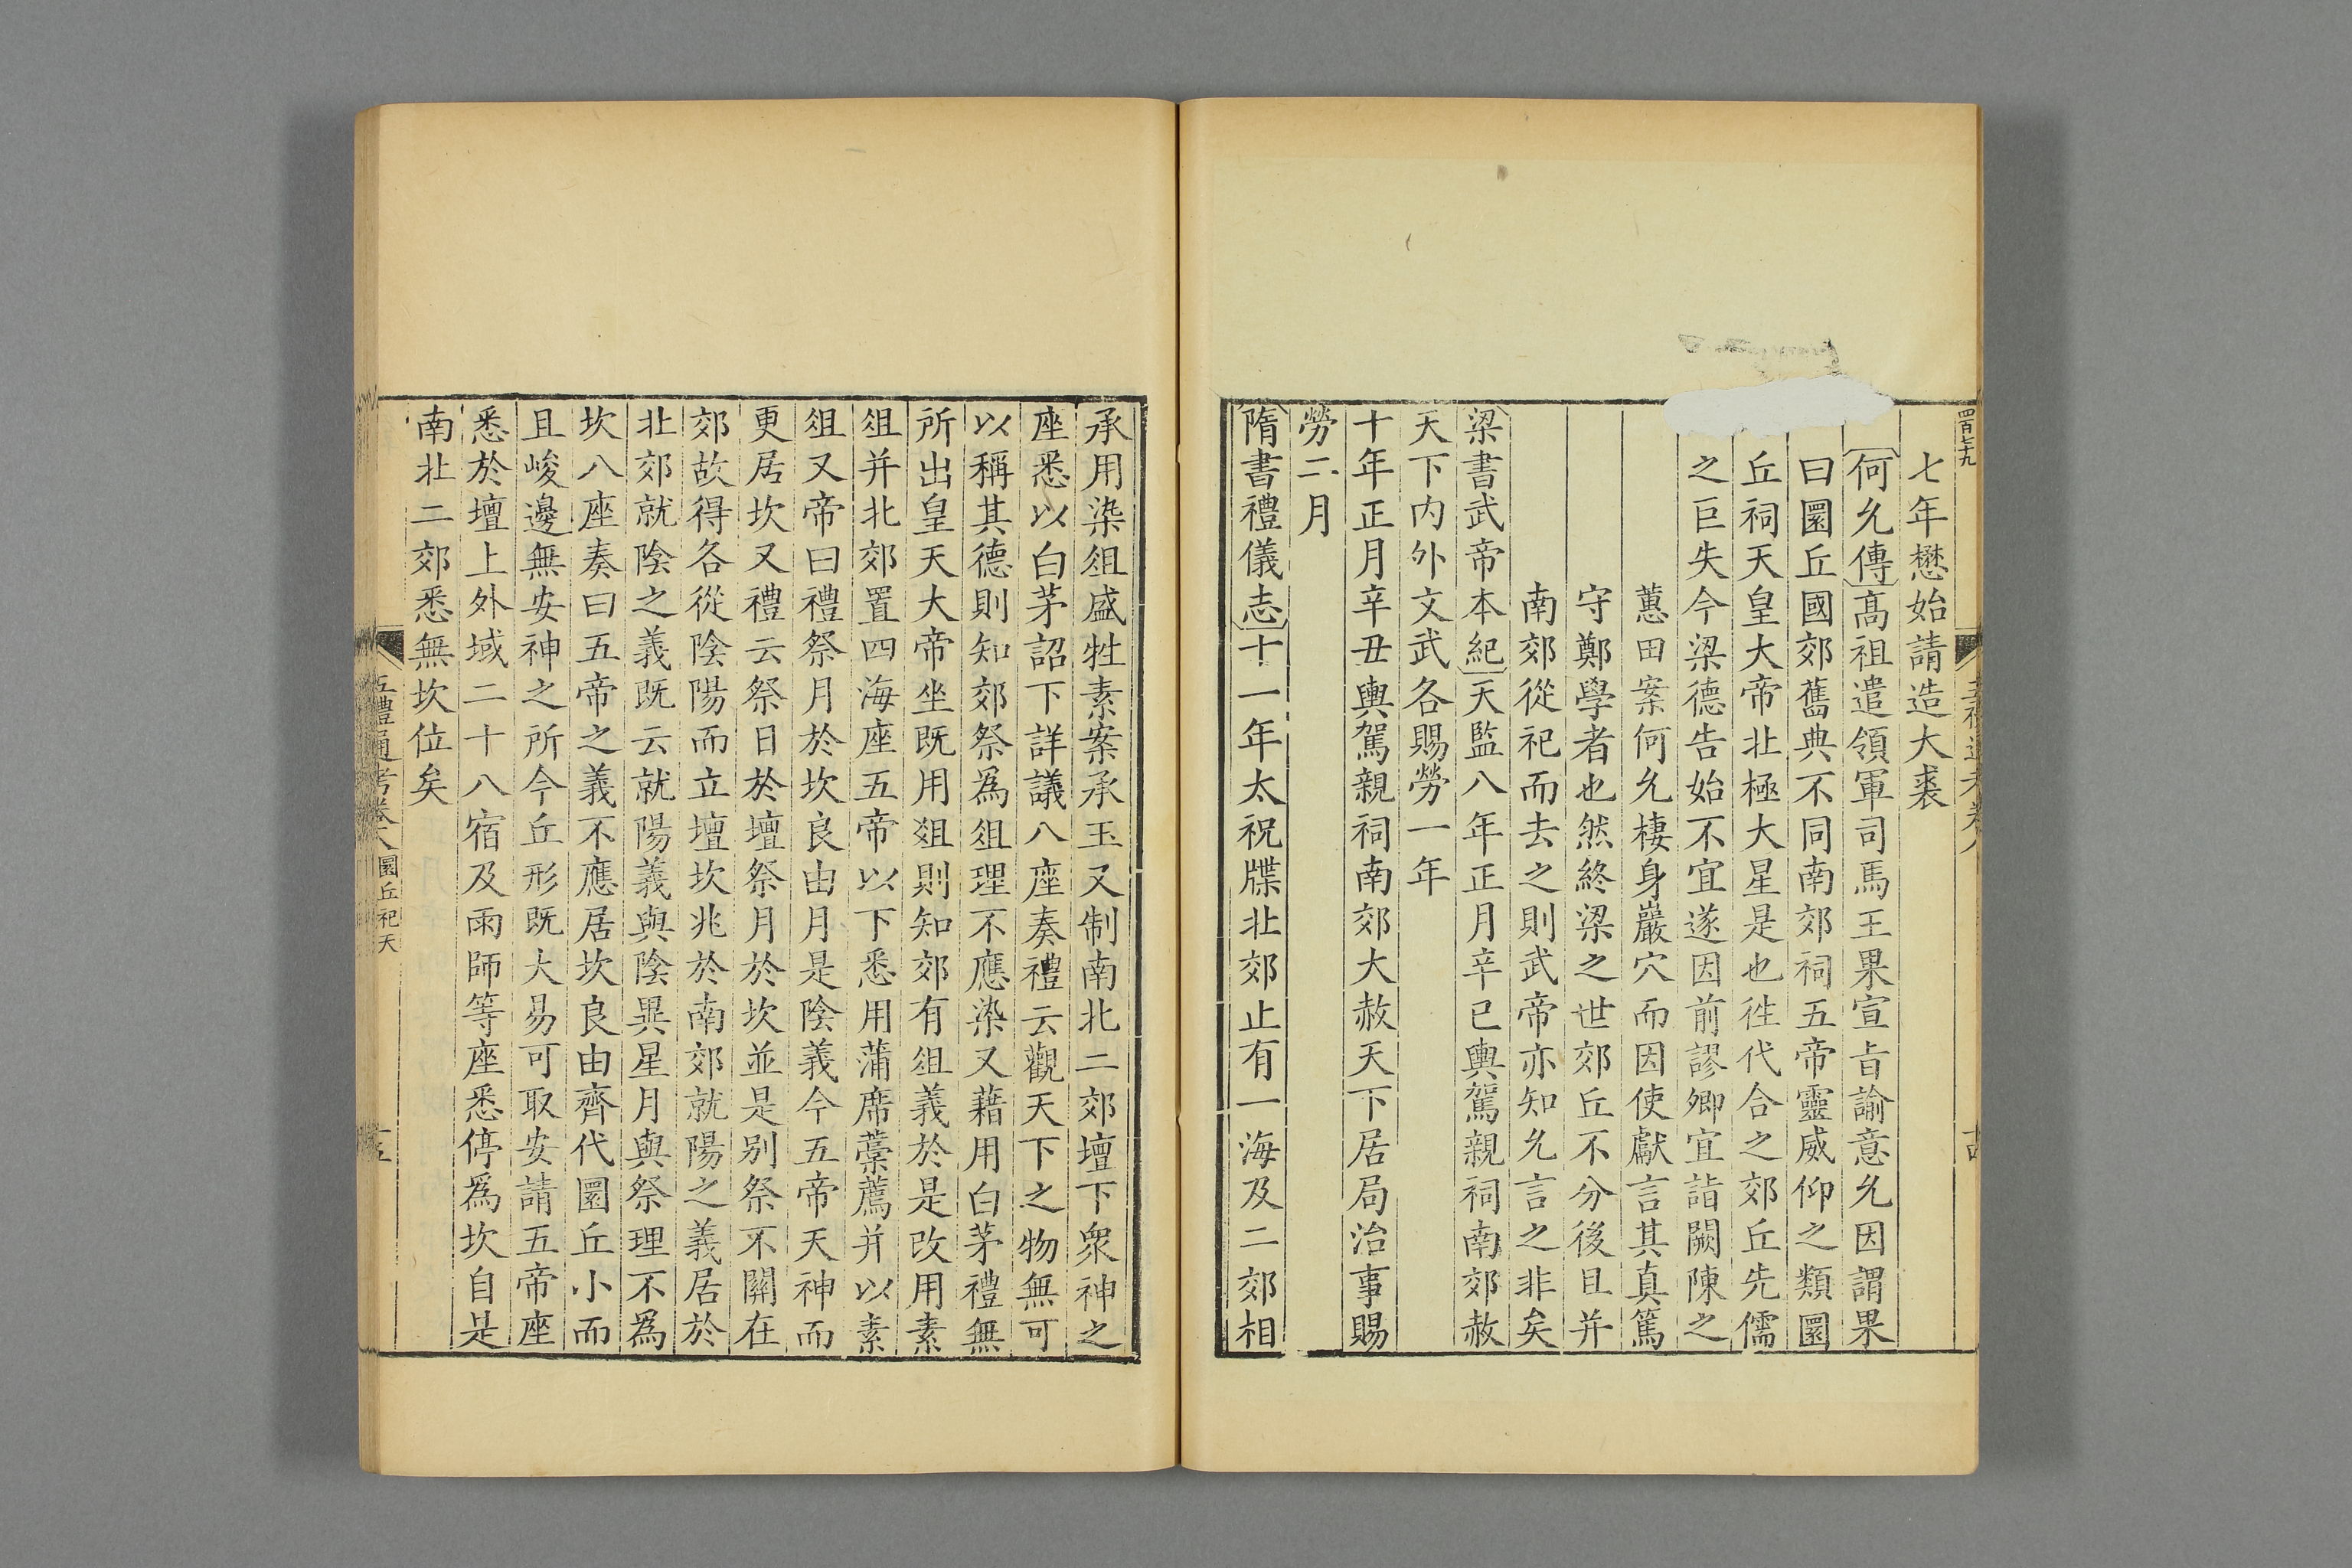 四百七十九
七年懋始請造大裘
何允傳高祖遣領軍司馬王果宣旨諭意允因謂果
曰圜丘國郊舊典不同南郊祠五帝靈威仰之類圜
丘祠天皇大帝北極大星是也徃代合之郊丘先儒
之巨失今梁德告始不宜遂因前謬卿宜詣闕陳之
蕙田案何允棲身巖穴而因使獻言其真篤
守鄭學者也然終梁之世郊丘不分後且并
南郊從祀而去之則武帝亦知允言之非矣
梁書武帝本紀天監八年正月辛巳輿駕親祠南郊赦
天下内外文武各賜勞一年
十年正月辛丑輿駕親祠南郊大赦天下居局治事賜
勞二月
隋書禮儀志十一年太祝牒北郊止有一海及二郊相
承用染俎盛牲素案承玉又制南北二郊壇下衆神之
座悉以白茅詔下詳議八座奏禮云觀天下之物無可
以稱其德則知郊祭為俎理不應染又藉用白茅禮無
所出皇天大帝坐既用俎則知郊有俎義於是改用素
俎并北郊置四海座五帝以下悉用蒲席藁薦并以素
俎又帝曰禮祭月於坎良由月是陰義今五帝天神而
更居坎又禮云祭日於壇祭月於坎並是别祭不關在
郊故得各從陰陽而立壇坎兆於南郊就陽之義居於
北郊就陰之義既云就陽義與陰異星月與祭理不為
坎八座奏曰五帝之義不應居坎良由齊代圜丘小而
且峻邊無安神之所今丘形既大易可取安請五帝座
悉於壇上外域二十八宿及雨師等座悉停為坎自是
南北二郊悉無坎位矣
五禮通考卷八 圜丘祀天